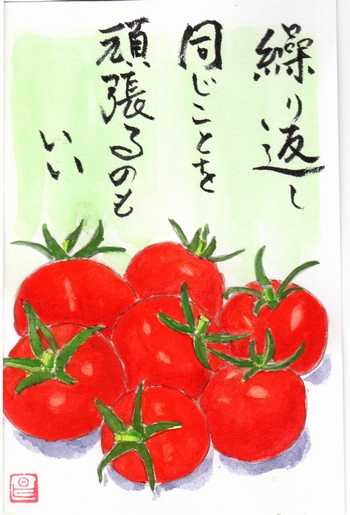 繰り返し
同じことを
頑張るのも
いい